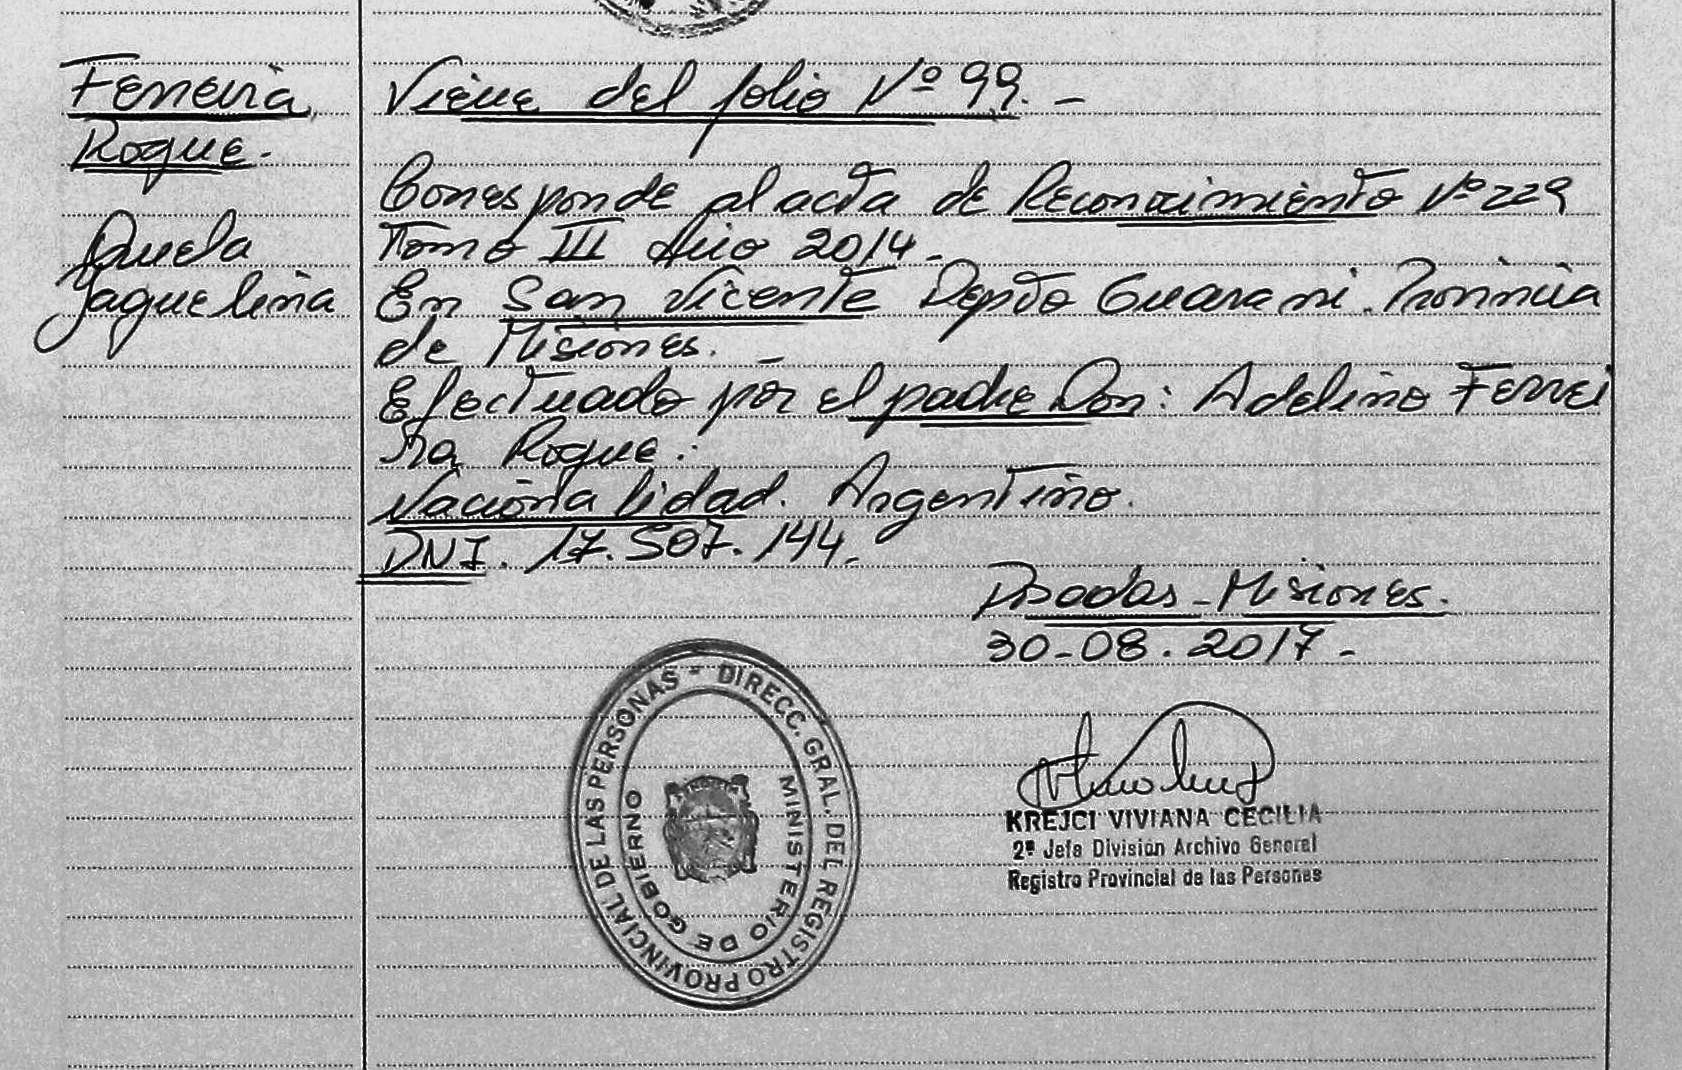 Ferreira
Roque.-
Jaquelina
Viene del folio Nº 99.-
Corresponde al acta de Reconocimiento Nº 229
Tomo III Año 2014.-
En San Vicente Depto Guarani. Provincia
de Misiones. -
Efectuado por el padre Don: Adelino Ferrei
ra Roque.
Nacionalidad. Argentino.
DNI. 17.507.144.-
Posadas - Misiones.
30-08.2017-
DIRECC. GRAL. DEL REGISTRO PROVINCIAL DE LAS PERSONAS -
MINISTERIO DE GOBIERNO
KREJCI VIVIANA CECILIA
2ª Jefe División Archivo General
Registro Provincial de las Personas